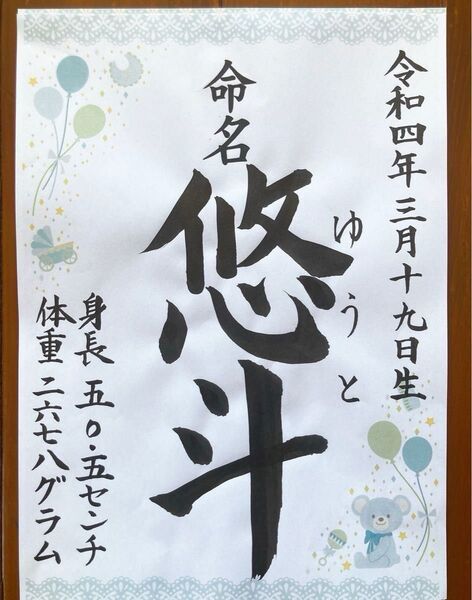 令和四年三月十九日生
命名
悠斗
ゆうと
身長 五〇・五センチ
体重 二六七八グラム